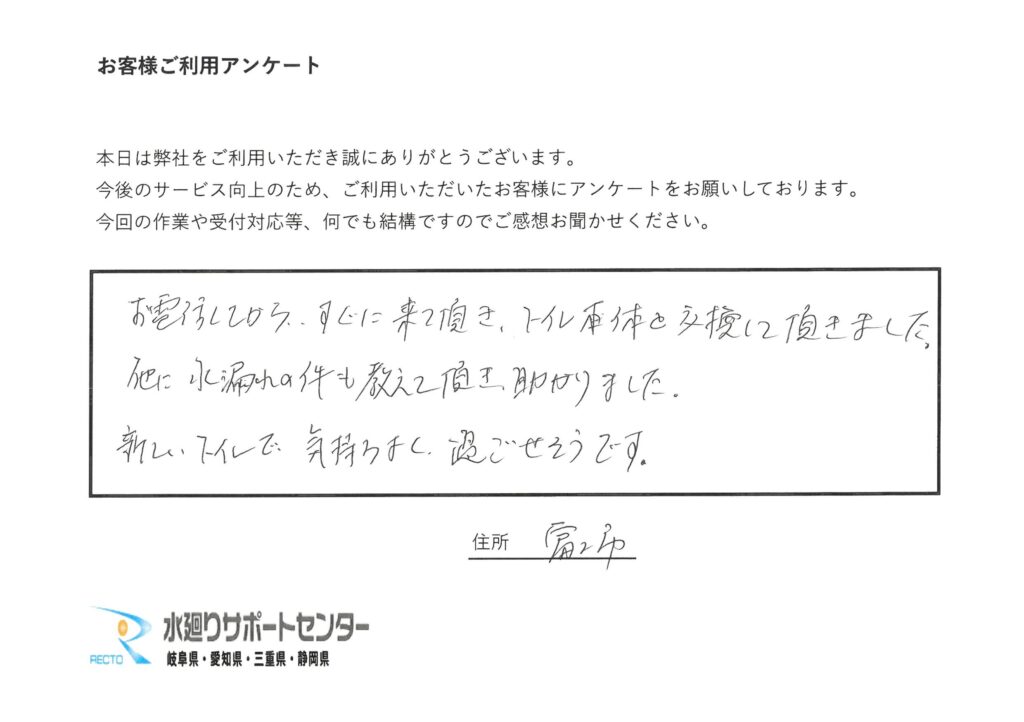 お客様ご利用アンケート
本日は弊社をご利用いただき誠にありがとうございます。
今後のサービス向上のため、ご利用いただいたお客様にアンケートをお願いしております。
今回の作業や受付対応等、何でも結構ですのでご感想お聞かせください。
お電話してから、すぐに来て頂き、トイレ本体を交換して頂きました。
他に水漏れの件も教えて頂き、助かりました。
新しいトイレで、気持ちよく、過ごせそうです。
住所 富士市
水廻りサポートセンター
RECTO 岐阜県・愛知県・三重県・静岡県